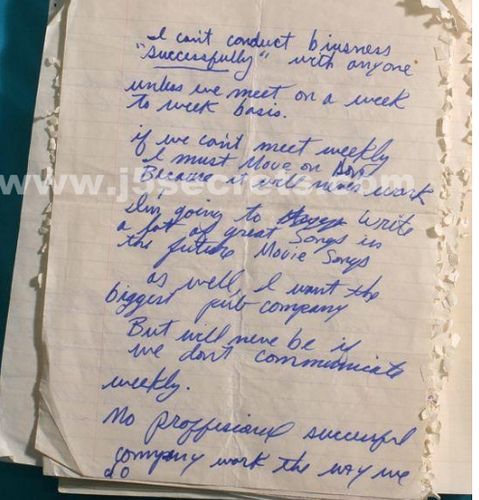 I can't conduct biusness
"successfully" with anyone
unless we meet on a week
to week basis.
if we can't meet weekly
I must Move on
Because it will never work
www.j5secrets.com
I'm going to Write
a lot of great Songs in
the future Movie Songs
as well, I want the
biggest pub company
But will neve be if
we don't communicate
weekly.
No proffisional successful
company work the way we
do